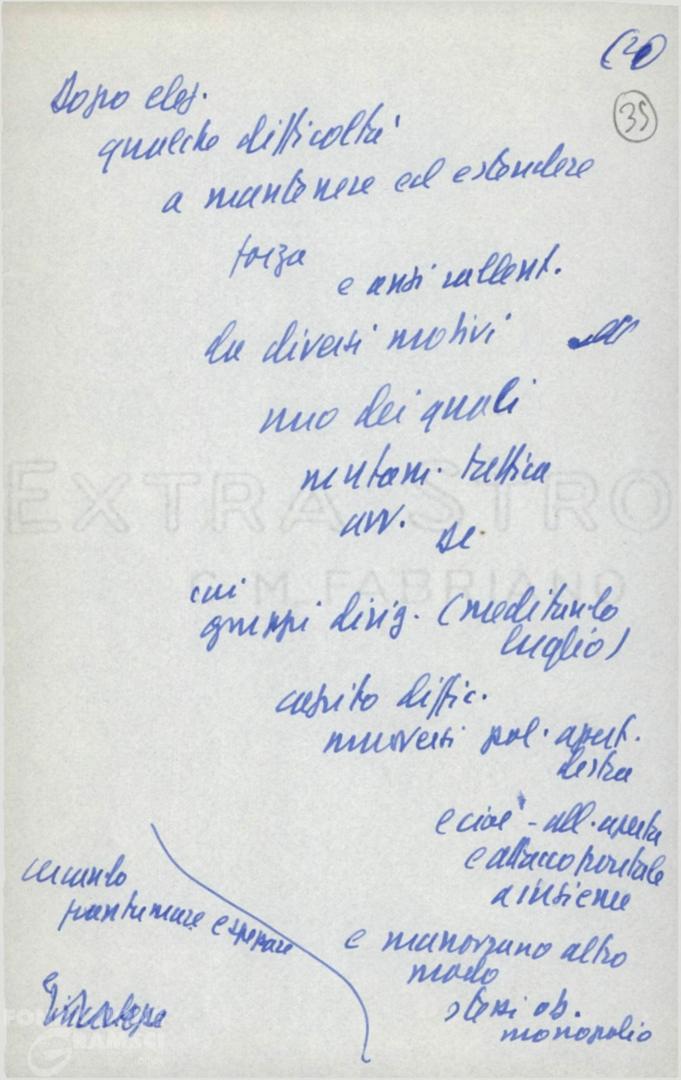 35
Dopo elez.
qualche difficoltà
a mantenere ed estendere
forza
e anzi rallent.
da diversi motivi
uno dei quali
mutam. tattica
avv. DC
cui
gruppi dirig. (meditando
luglio)
capito diffic.
muoversi pol. apert.
destra
e cioè - all. aperta
e attacco frontale
a insieme
e manovrano altro
modo
stessi ob.
monopolio
cercando
frantumare e
EXTRA STRO
C.M. FABRIANO
FON
GRAMSCI